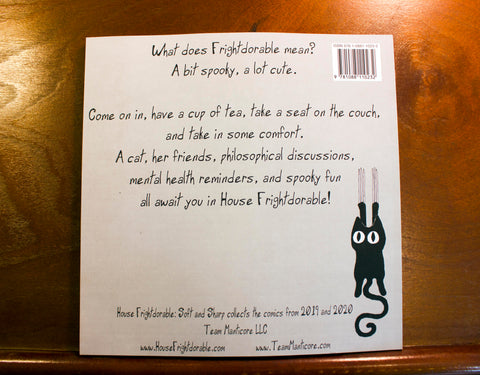 What does Frightdorable mean?
A bit spooky, a lot cute.
Come on in, have a cup of tea, take a seat on the couch,
and take in some comfort.
A cat, her friends, philosophical discussions,
mental health reminders, and spooky fun
all await you in House Frightdorable!
House Frightdorable: Soft and Sharp collects the comics from 2019 and 2020
Team Manticore LLC
www.HouseFrightdorable.com
www.TeamManticore.com
9 781088 115232